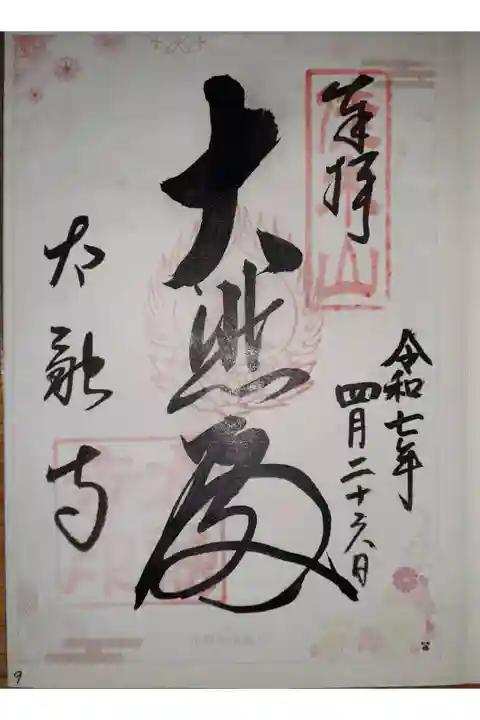 奉拝
令和七年
四月二十六日
大悲殿
太融寺
9